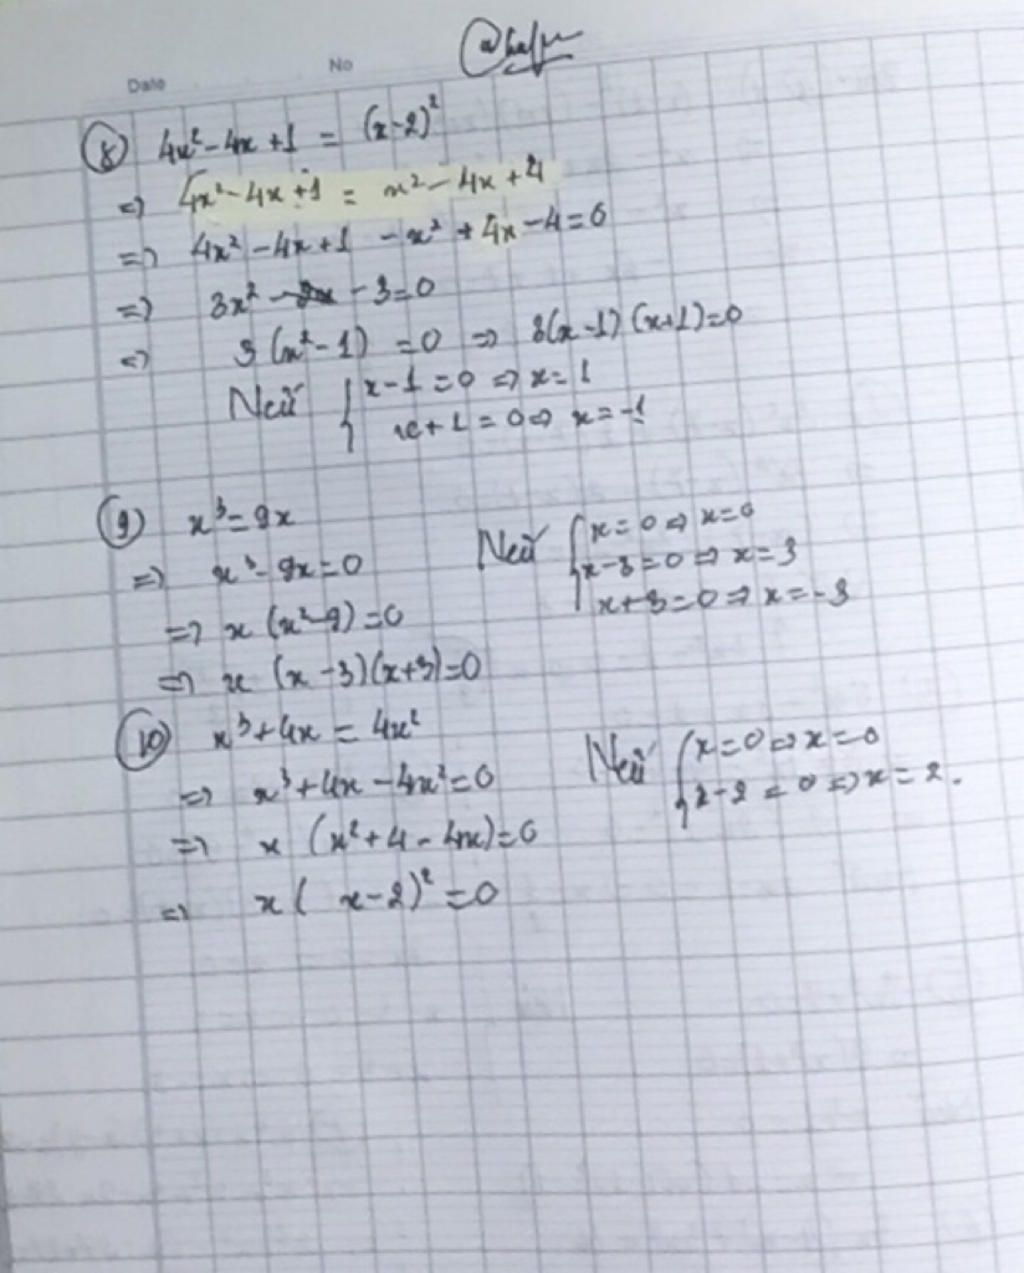 Date No
⑧ 4x² - 4x + 1 = (x-2)²
=> 4x² - 4x + 1 = x² - 4x + 4
=> 4x² - 4x + 1 - x² + 4x - 4 = 0
=> 3x² - 3 = 0
=> 3(x² - 1) = 0 => 3(x-1)(x+1) = 0
Nếu { x - 1 = 0 => x = 1
x + 1 = 0 => x = -1
⑨ x³ = 9x
=> x³ - 9x = 0
=> x (x² - 9) = 0
=> x (x - 3)(x+3) = 0
Nếu { x = 0 => x = 0
x - 3 = 0 => x = 3
x + 3 = 0 => x = -3
⑩ x³ + 4x = 4x²
=> x³ + 4x - 4x² = 0
=> x (x² + 4 - 4x) = 0
=> x ( x - 2)² = 0
Nếu { x = 0 => x = 0
x - 2 = 0 => x = 2.